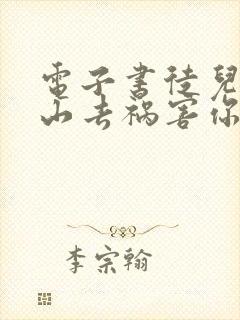 電子書徒兒
山去禍害你
李宗翰